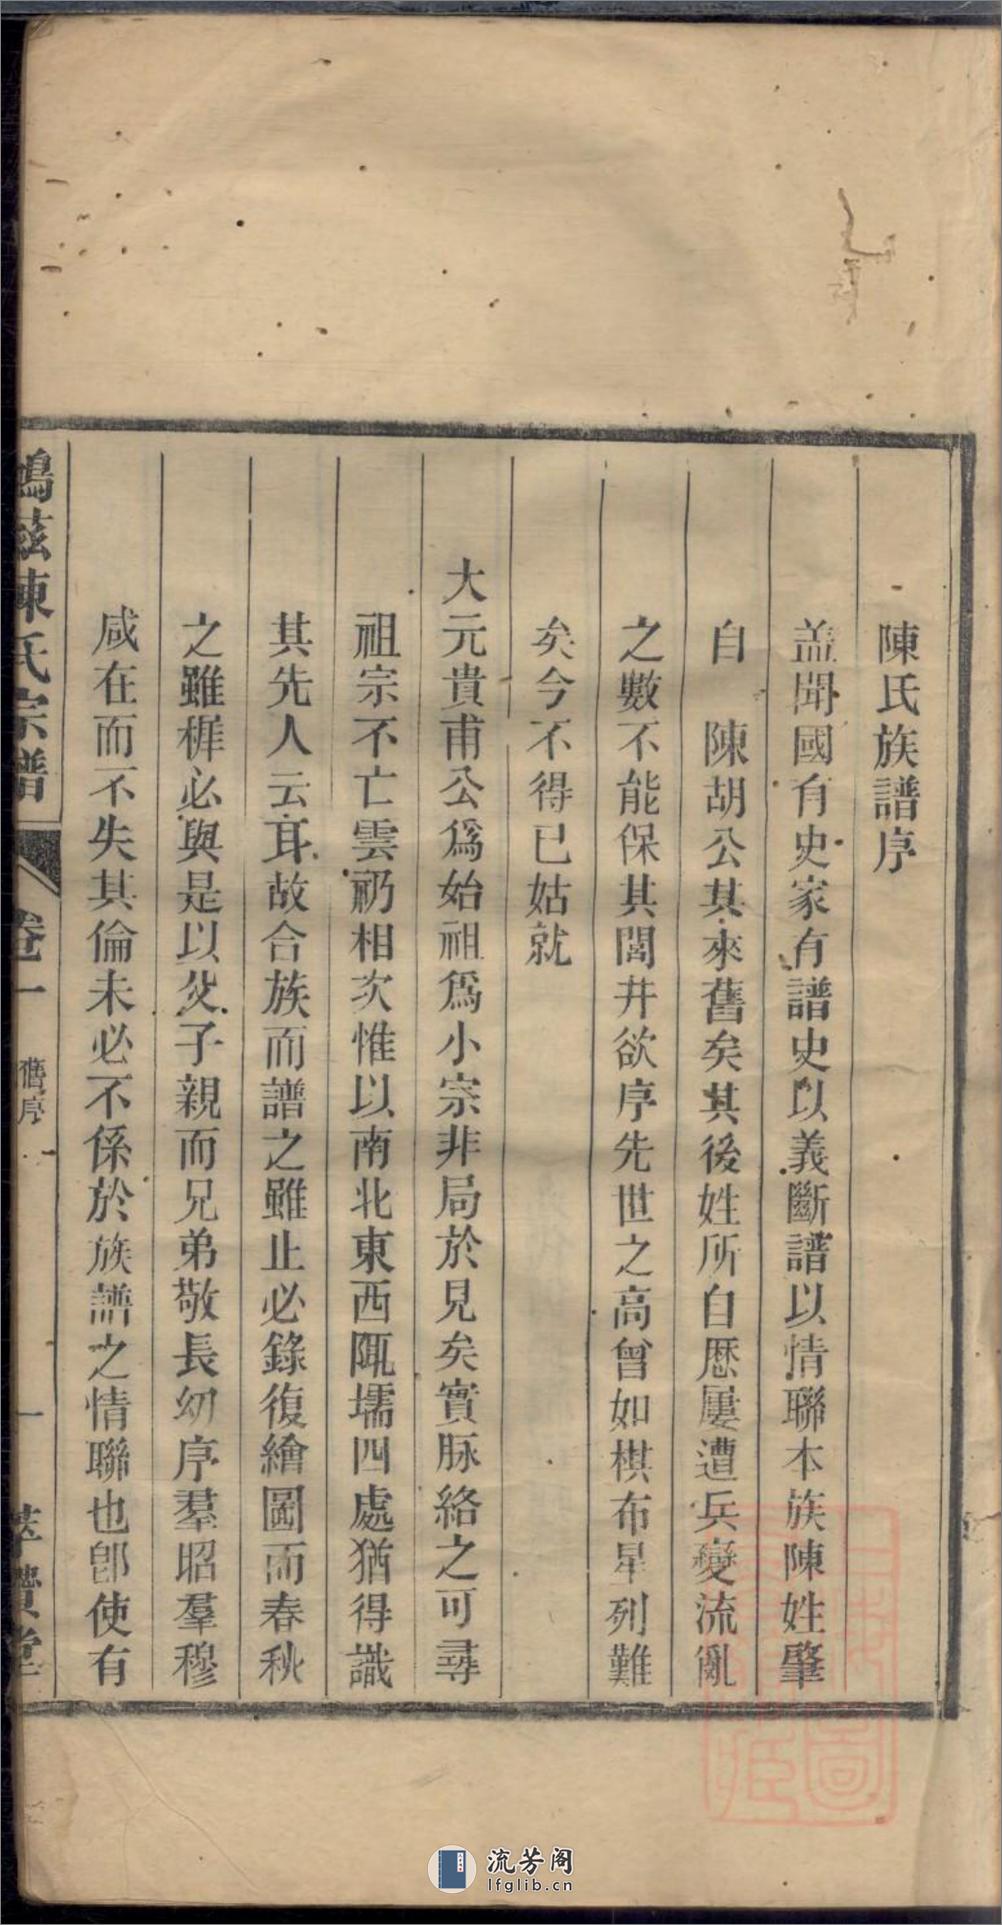 陳氏族譜序
盖聞國有史家有譜史以義斷譜以情聯本族陳姓肇
自　陳胡公其來舊矣其後姓所自歷屢遭兵變流亂
之數不能保其閭井欲序先世之高曾如棋布星列難
矣今不得已姑就
大元貴甫公爲始祖爲小宗非局於見矣實脉絡之可尋
祖宗不亡雲礽相次惟以南北東西陬壖四處猶得識
其先人云耳故合族而譜之雖止必錄復繪圖而春秋
之雖樨必與是以父子親而兄弟敬長幼序羣昭羣穆
咸在而不失其倫未必不係於族譜之情聯也卽使有
鳩茲陳氏宗譜
卷一
舊序
一
萃賢堂
流芳阁
lfglib.cn